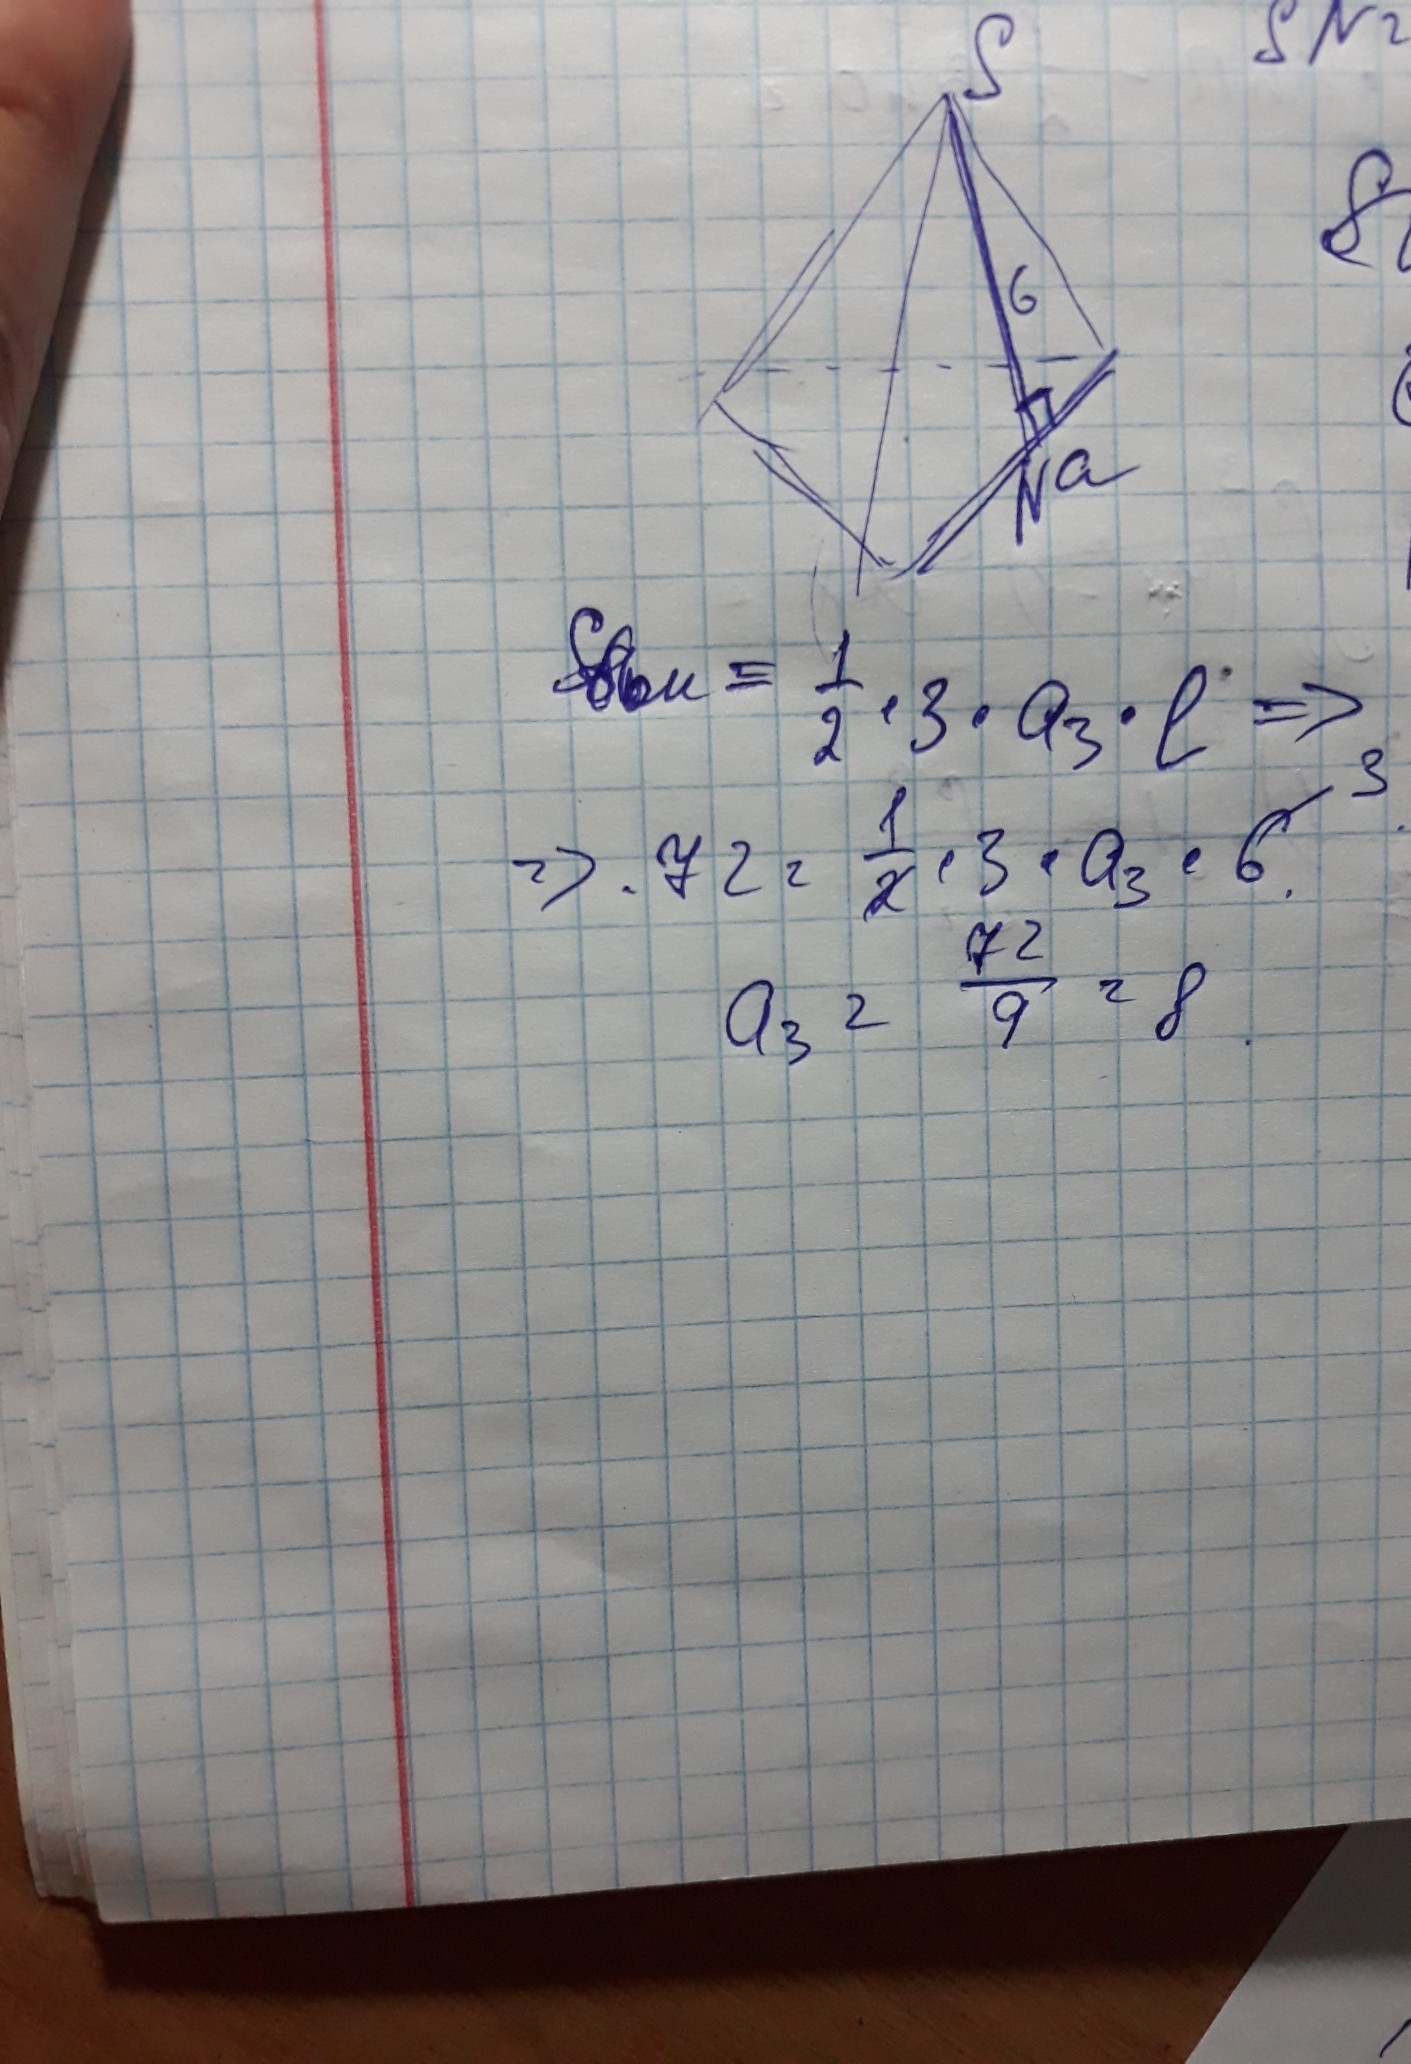 S
SN=
6
N a
Sбок = 1/2 · 3 · a₃ · l =>
=> 72 = 1/2 · 3 · a₃ · 6 3
a₃ = 72/9 = 8